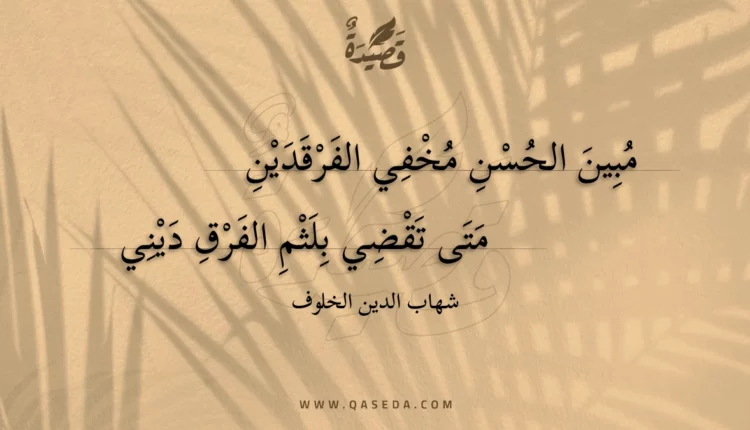 قَصِيدَةٌ
مُبِينَ الحُسْنِ مُخْفِي الفَرْقَدَيْنِ
مَتَى تَقْضِي بِلَثْمِ الفَرْقِ دَيْنِي
شهاب الدين الخلوف
WWW.QASEDA.COM